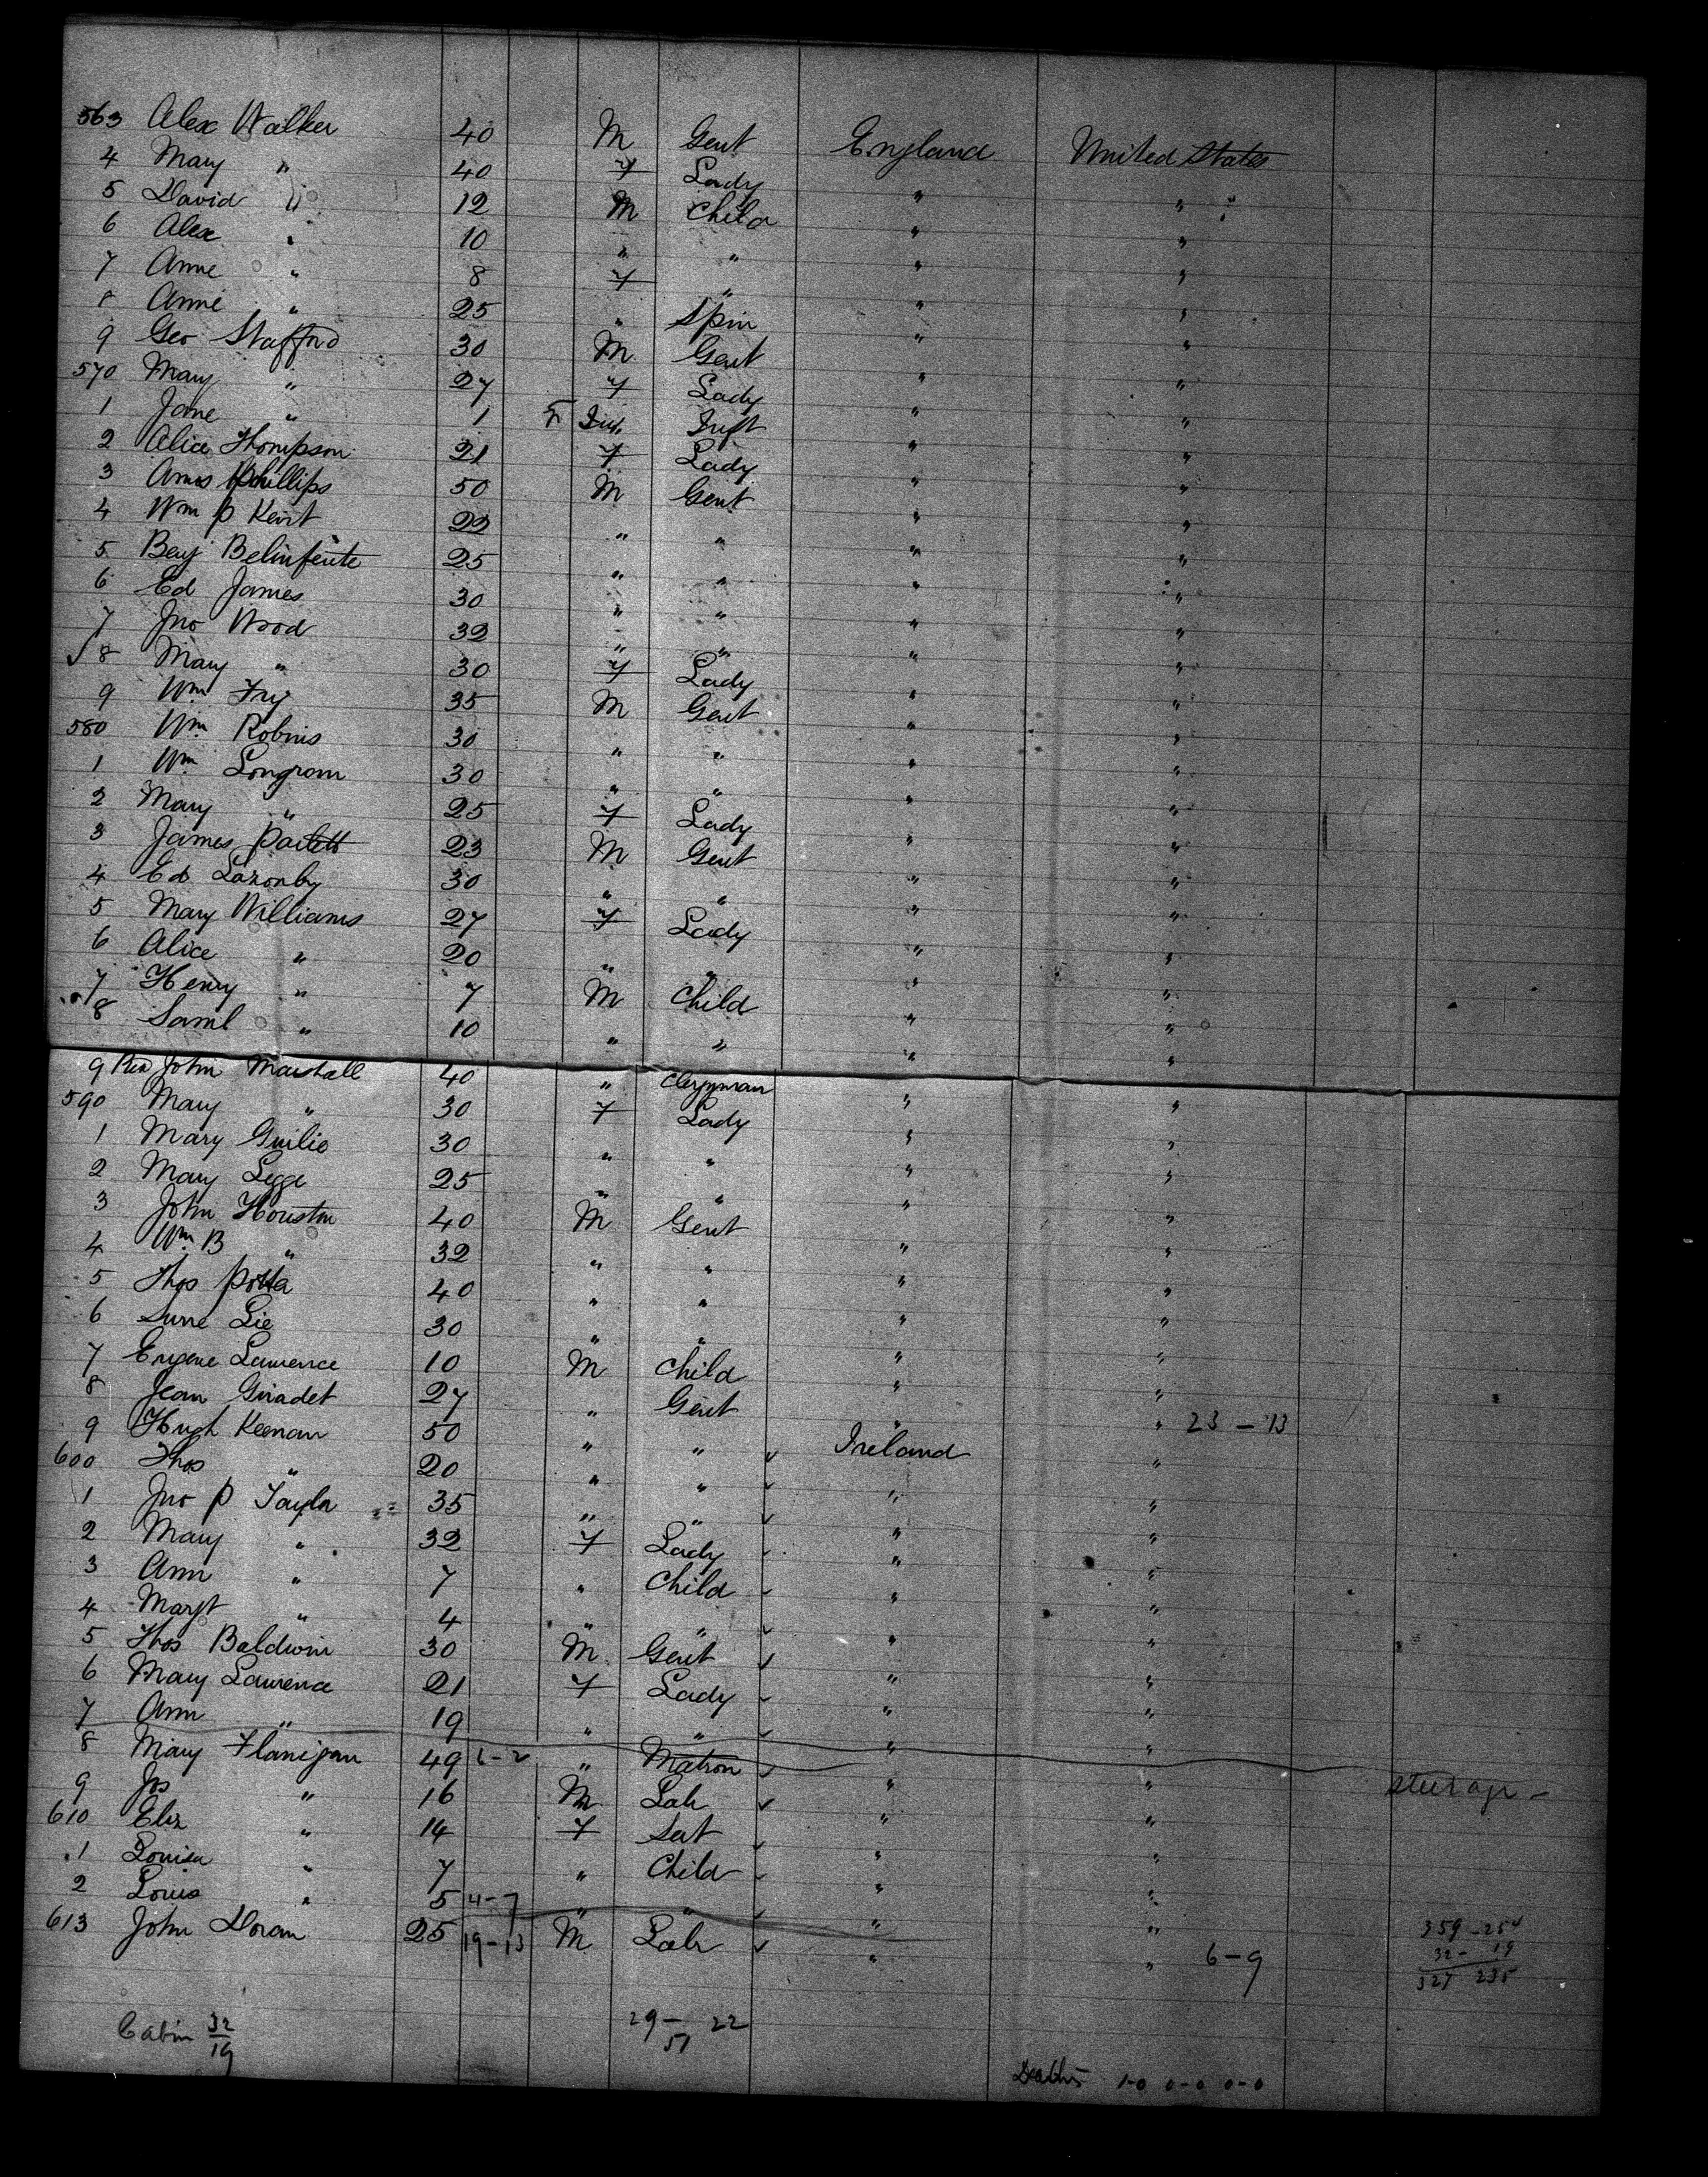 563 Alex Walker 40 M Gent England United States
4 Mary " 40 F Lady " "
5 David " 12 M Child " "
6 Alex " 10 " " " "
7 Anne " 8 F " " "
8 Anne " 25 " Spin " "
9 Geo Stafford 30 M Gent " "
570 Mary " 27 F Lady " "
1 Jane " 1 Inft " "
2 Alice Thompson 21 F Lady " "
3 Amos Phillips 50 M Gent " "
4 Wm P Kent 22 " " " "
5 Benj Belinfente 25 " " " "
6 Ed James 30 " " " "
7 Jno Wood 32 " " " "
8 Mary " 30 F Lady " "
9 Wm Fry 35 M Gent " "
580 Wm Robins 30 " " " "
1 Wm Longrom 30 " " " "
2 Mary " 25 F Lady " "
3 James 23 M Gent " "
4 Ed Lazonby 30 " " " "
5 Mary Williams 27 F Lady " "
6 Alice " 20 " " " "
7 Henry " 7 M Child " "
8 Saml " 10 " " " "
9 Rev John Marshall 40 " Clergyman " "
590 Mary " 30 F Lady " "
1 Mary 30 " " " "
2 Mary Legge 25 " " " "
3 John Houston 40 M Gent " "
4 Wm B " 32 " " " "
5 Thos 40 " " " "
6 Lie 30 " " " "
7 Eugene Lawrence 10 M Child " "
8 Jean Giradet 27 " Gent " " 23 - 13
9 Hugh Keenan 50 " " Ireland "
600 Thos " 20 " " " "
1 Jno P Taylor 35 " " " "
2 Mary " 32 F Lady " "
3 Ann " 7 " Child " "
4 Margt " 4 " " " "
5 Thos Baldwin 30 M Gent " "
6 Mary Lawrence 21 F Lady " "
7 Ann " 19 " " " "
8 Mary Flanigan 49 6-2 " Matron " "
9 Jos " 16 M Lab " " steerage -
610 Eliz " 14 F " "
1 Louisa " 7 " Child " "
2 Louis " 5 4-7 " " " "
613 John Doran 25 19-13 M Lab " " 6-9
359 - 254
32 - 19
327 235
Cabin 32
19
29 - 22
51
Deaths 1-0 0-0 0-0